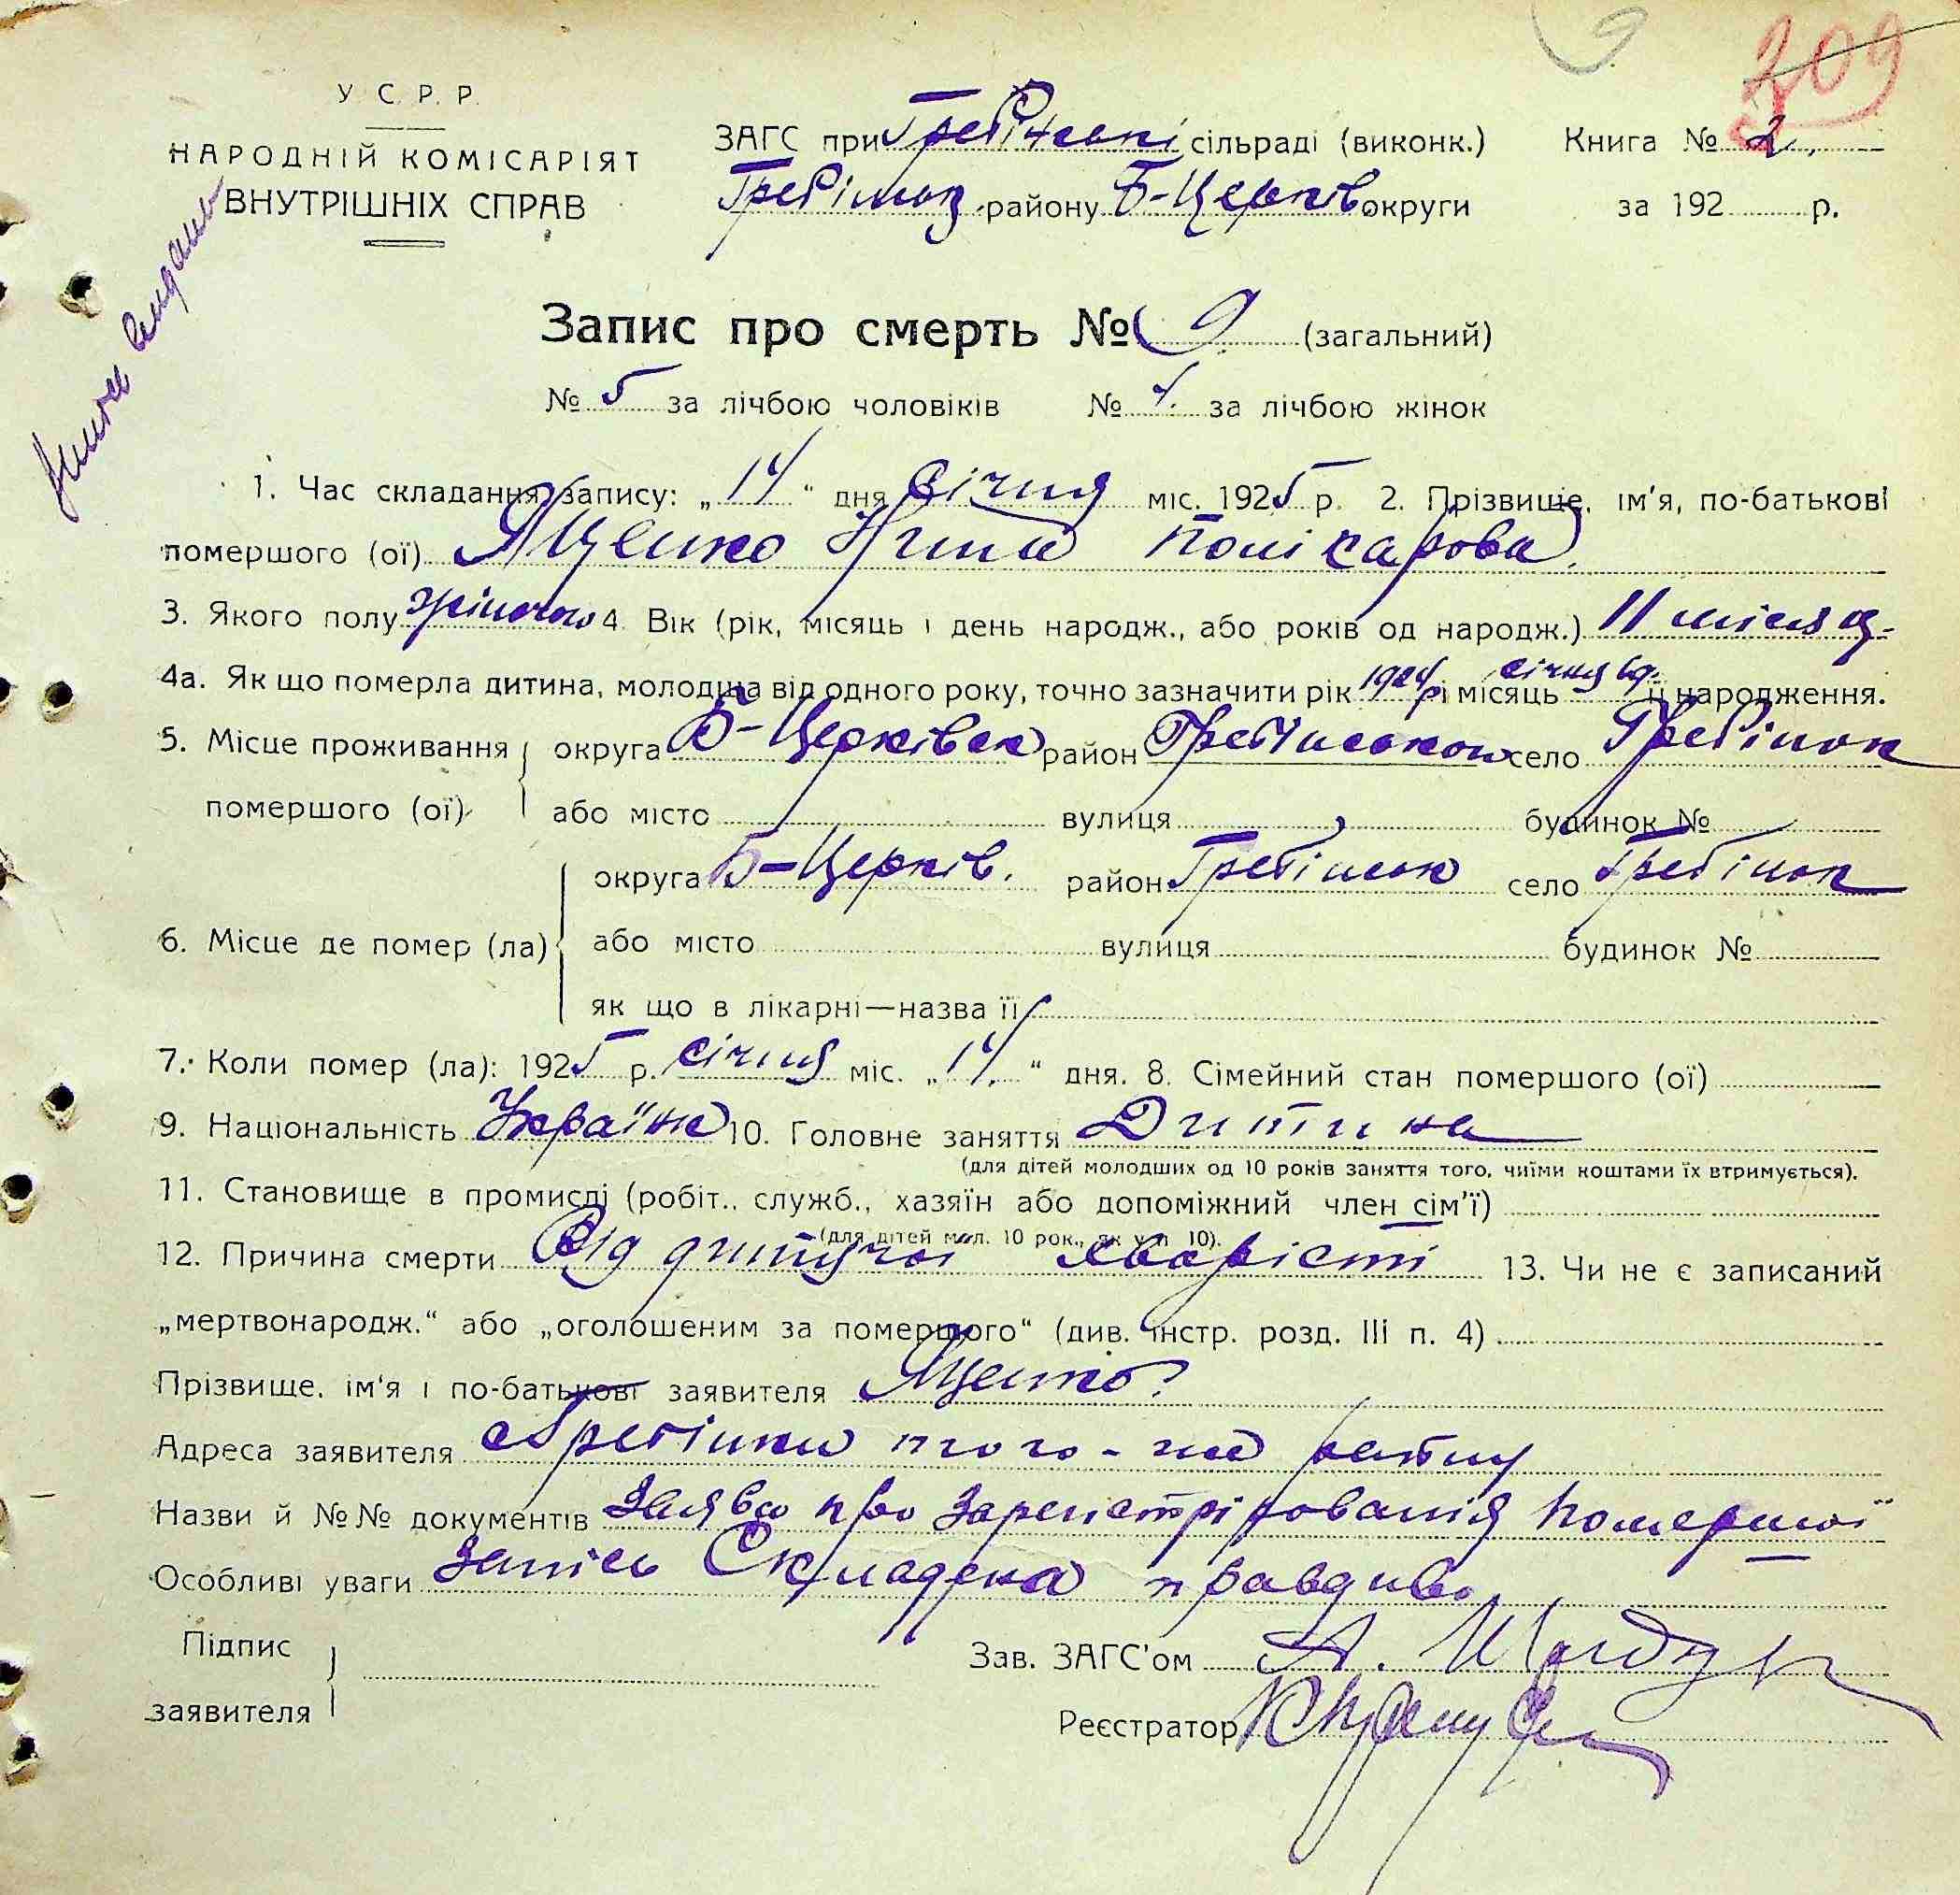 209
У. С. Р. Р.
НАРОДНІЙ КОМІСАРІЯТ
ВНУТРІШНІХ СПРАВ
ЗАГС при Гребінські сільраді (виконк.) Книга № 2.
району Б-Церків округи за 192 р.
Запис про смерть № 9 (загальний)
№ 5 за лічбою чоловіків № 4. за лічбою жінок
1. Час складання запису: „14“ дня січня міс. 1925 р. 2. Прізвище, ім'я, по-батькові
помершого (ої) Яценко Нина Полікарова
3. Якого полу жіночого 4. Вік (рік, місяць і день народж., або років од народж.) 11 місяц.
4а. Як що померла дитина, молодша від одного року, точно зазначити рік 1924 р і місяць січня її народження.
5. Місце проживання помершого (ої) округа Б-Церківск район Гребінського село Гребінок
або місто вулиця будинок №
6. Місце де помер (ла) округа Б-Церків. район Гребінськ село Гребінок
або місто вулиця будинок №
як що в лікарні—назва її
7. Коли помер (ла): 1925 р. січня міс. „14.“ дня. 8. Сімейний стан помершого (ої)
9. Національність Україн 10. Головне заняття Дитина
(для дітей молодших од 10 років заняття того, чиїми коштами їх втримується).
11. Становище в промислі (робіт., служб., хазяїн або допоміжний член сім'ї)
(для дітей мол. 10 рок., як у п 10).
12. Причина смерти Від дитячої хварісті 13. Чи не є записаний
„мертвонародж.“ або „оголошеним за помершого“ (див. інстр. розд. III п. 4)
Прізвище, ім'я і по-батькові заявителя Яценко
Адреса заявителя Гребінки того-ж
Назви й №№ документів Заява про зарегистрірованія помершої
Особливі уваги Запісь Складена правдиво
Підпис заявителя
Зав. ЗАГС'ом А.
Реєстратор